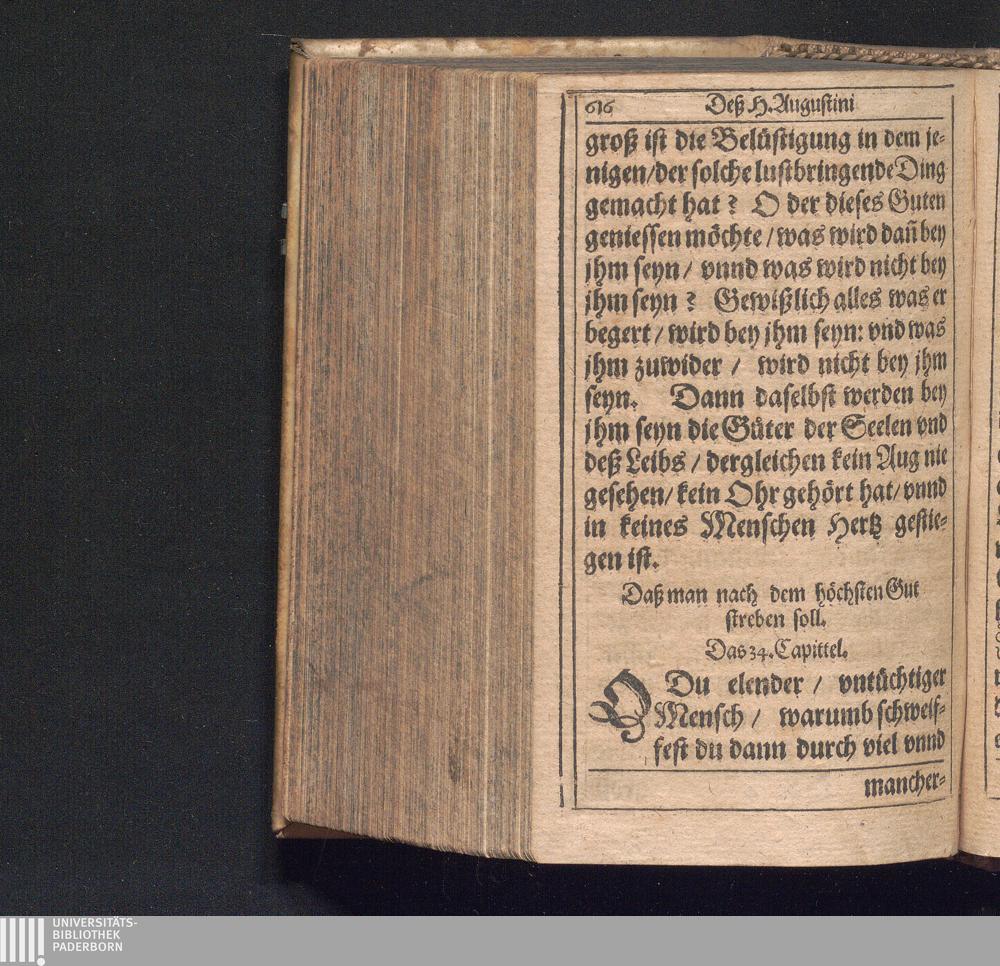 616 Deß H. Augustini
groß ist die Belüstigung in dem je-
nigen/der solche lustbringende Ding
gemacht hat? O der dieses Guten
geniessen möchte/was wird dañ bey
jhm seyn/ vnnd was wird nicht bey
jhm seyn? Gewißlich alles was er
begert/wird bey jhm seyn: vnd was
jhm zuwider / wird nicht bey jhm
seyn. Dann daselbst werden bey
jhm seyn die Güter der Seelen vnd
deß Leibs / dergleichen kein Aug nie
gesehen/kein Ohr gehört hat/vnnd
in keines Menschen Hertz gestie-
gen ist.
Daß man nach dem höchsten Gut
streben soll.
Das 34. Capittel.
O Du elender / vntüchtiger
Mensch / warumb schweif-
fest du dann durch viel vnnd
mancher-
UNIVERSITÄTS-
BIBLIOTHEK
PADERBORN